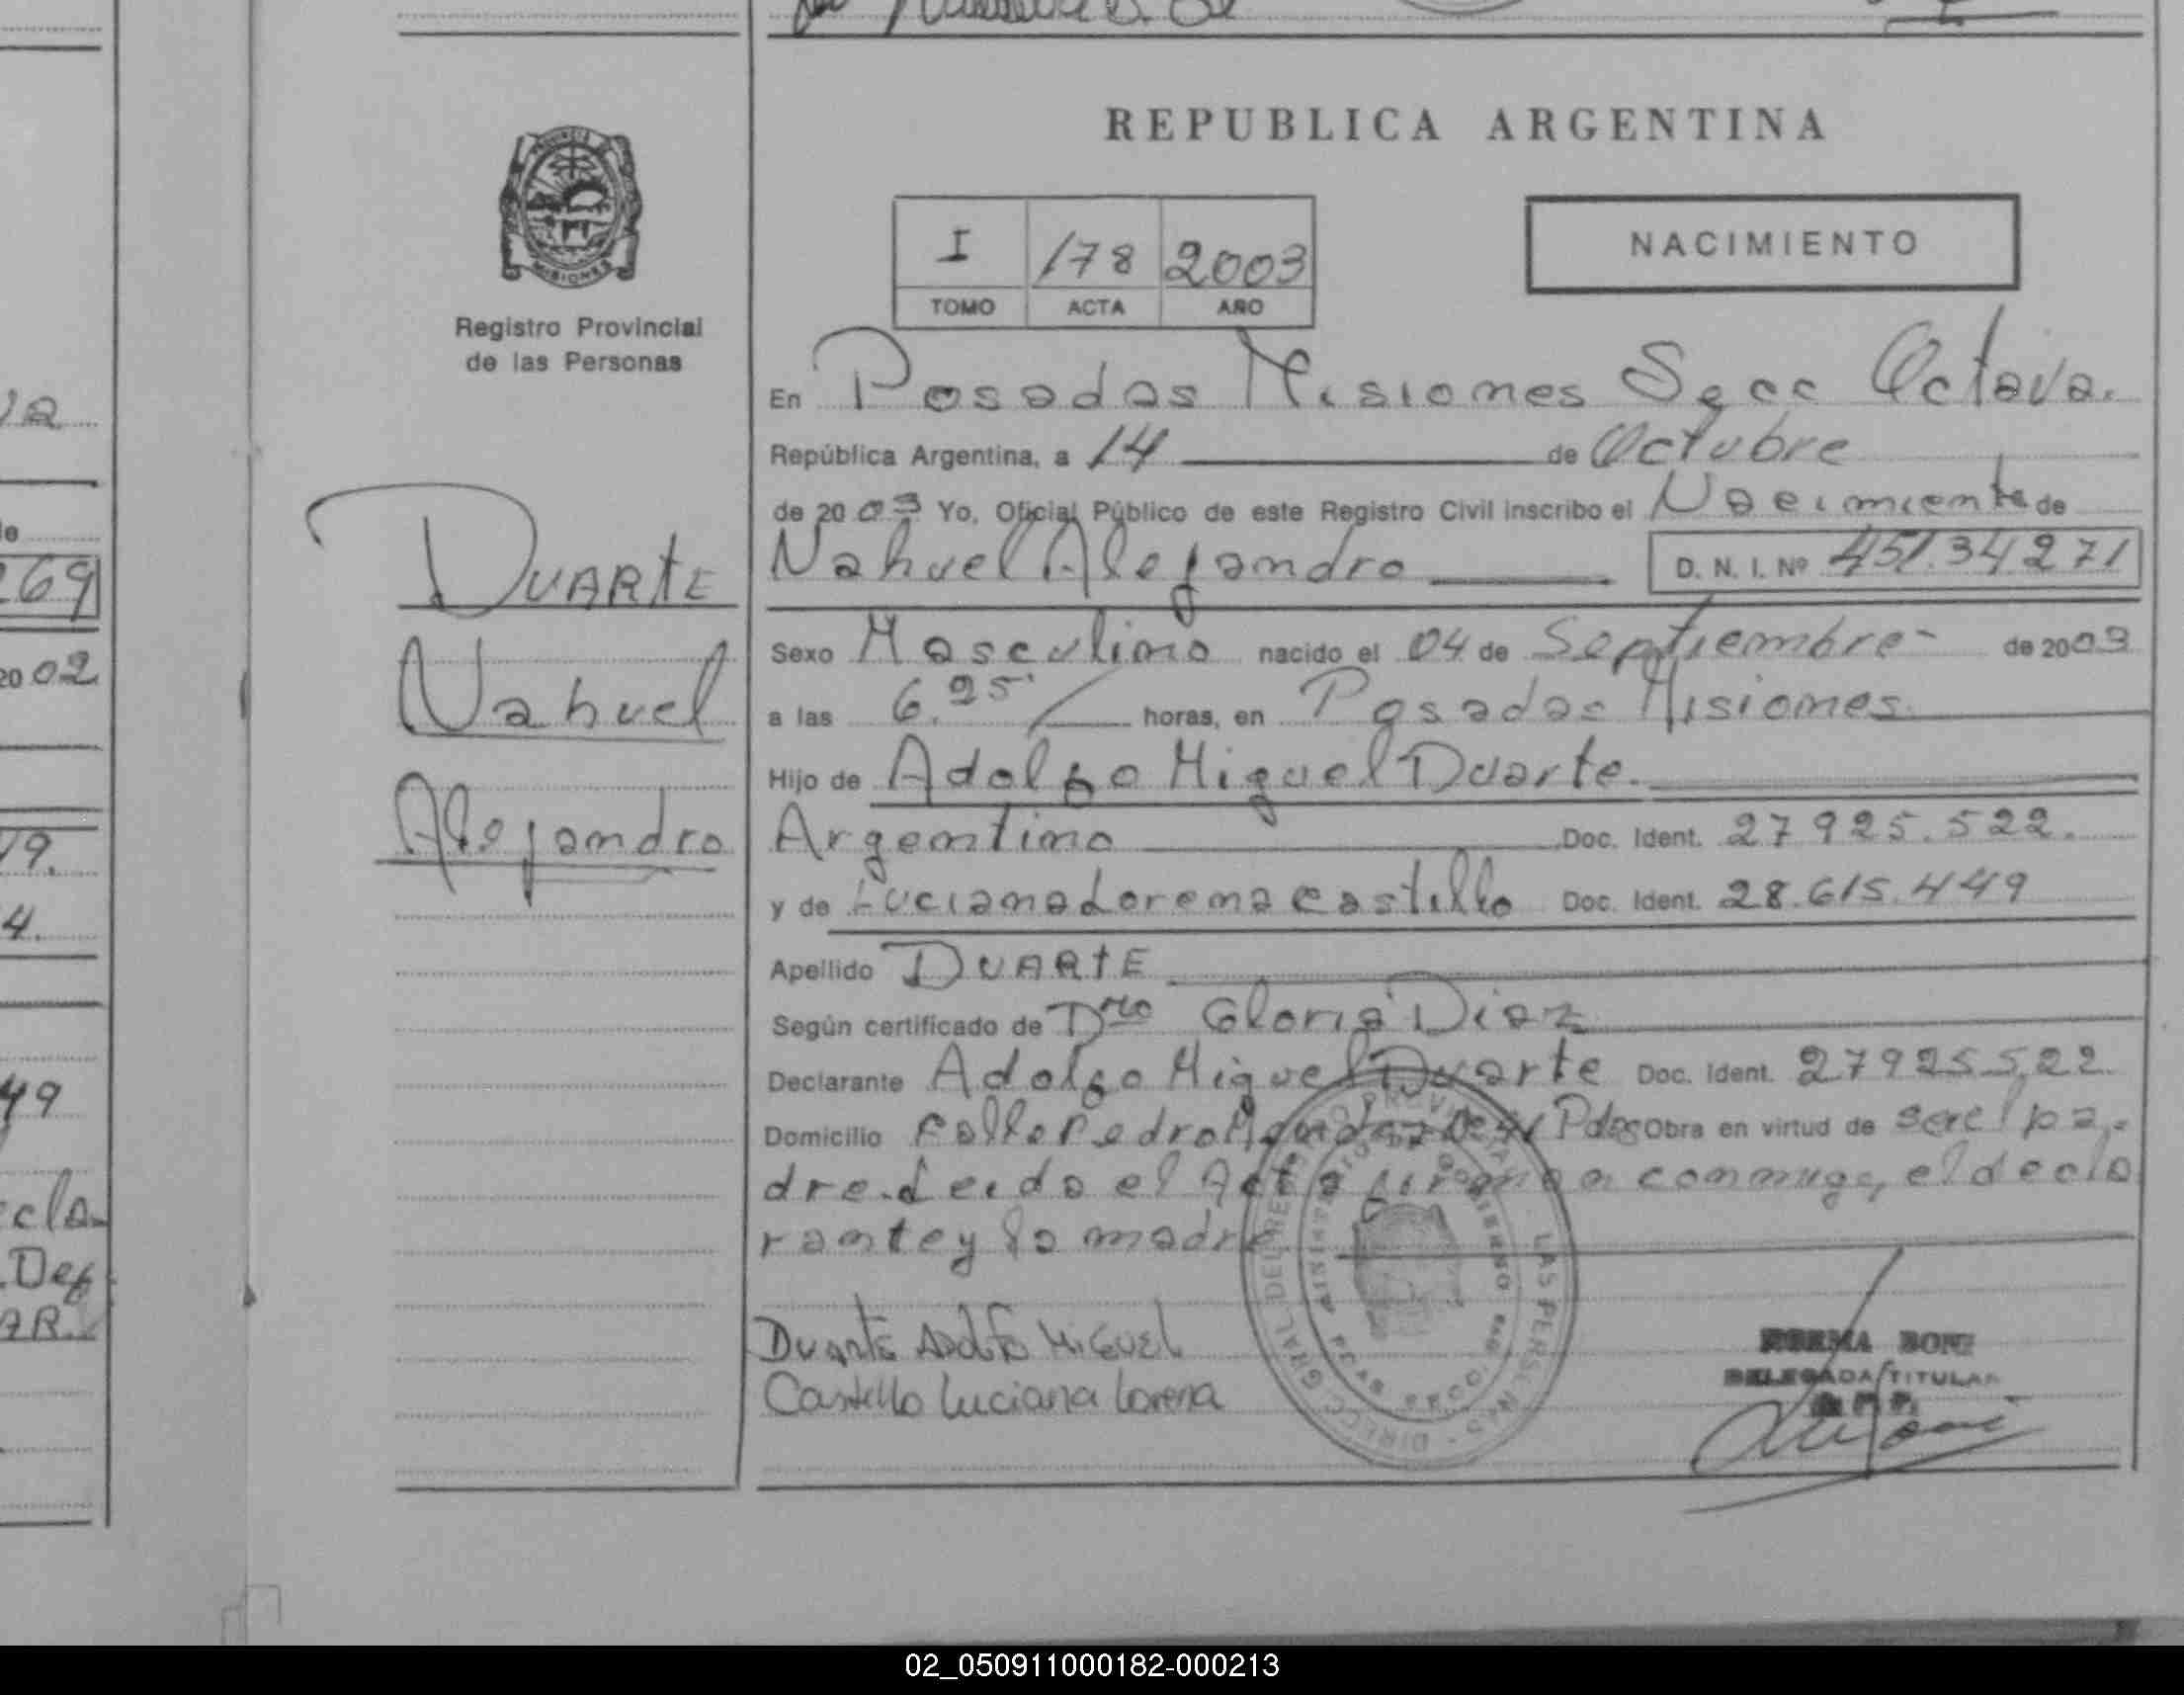 REPUBLICA ARGENTINA
PROVINCIA DE
MISIONES
Registro Provincial
de las Personas
I 178 2003
TOMO ACTA AÑO
NACIMIENTO
En Posadas Misiones Secc Octava.
República Argentina, a 14 de Octubre
de 2003 Yo, Oficial Público de este Registro Civil inscribo el Nacimiento de
Nahuel Alejandro D. N. I. Nº 45134271
Sexo Masculino nacido el 04 de Septiembre de 2003
a las 6.25 horas, en Posadas Misiones
Hijo de Adolfo Miguel Duarte.
Argentino Doc. Ident. 27925.522.
y de Luciana Lorena Castillo Doc. Ident. 28.615.449
Apellido DUARTE
Según certificado de Dra Gloria Diaz
Declarante Adolfo Miguel Duarte Doc. Ident. 27925522.
Domicilio Calle Pedro Pdas Obra en virtud de ser el pa-
dre. Leida el Acta conmigo, el decla
rante y la madre
Duarte Adolfo Miguel
Castillo Luciana Lorena
NORMA BONI
DELEGADA TITULAR
DUARTE
Nahuel
Alejandro
va
de
269
2002
19.
4.
49
ecla-
Def
AR.
02_050911000182-000213